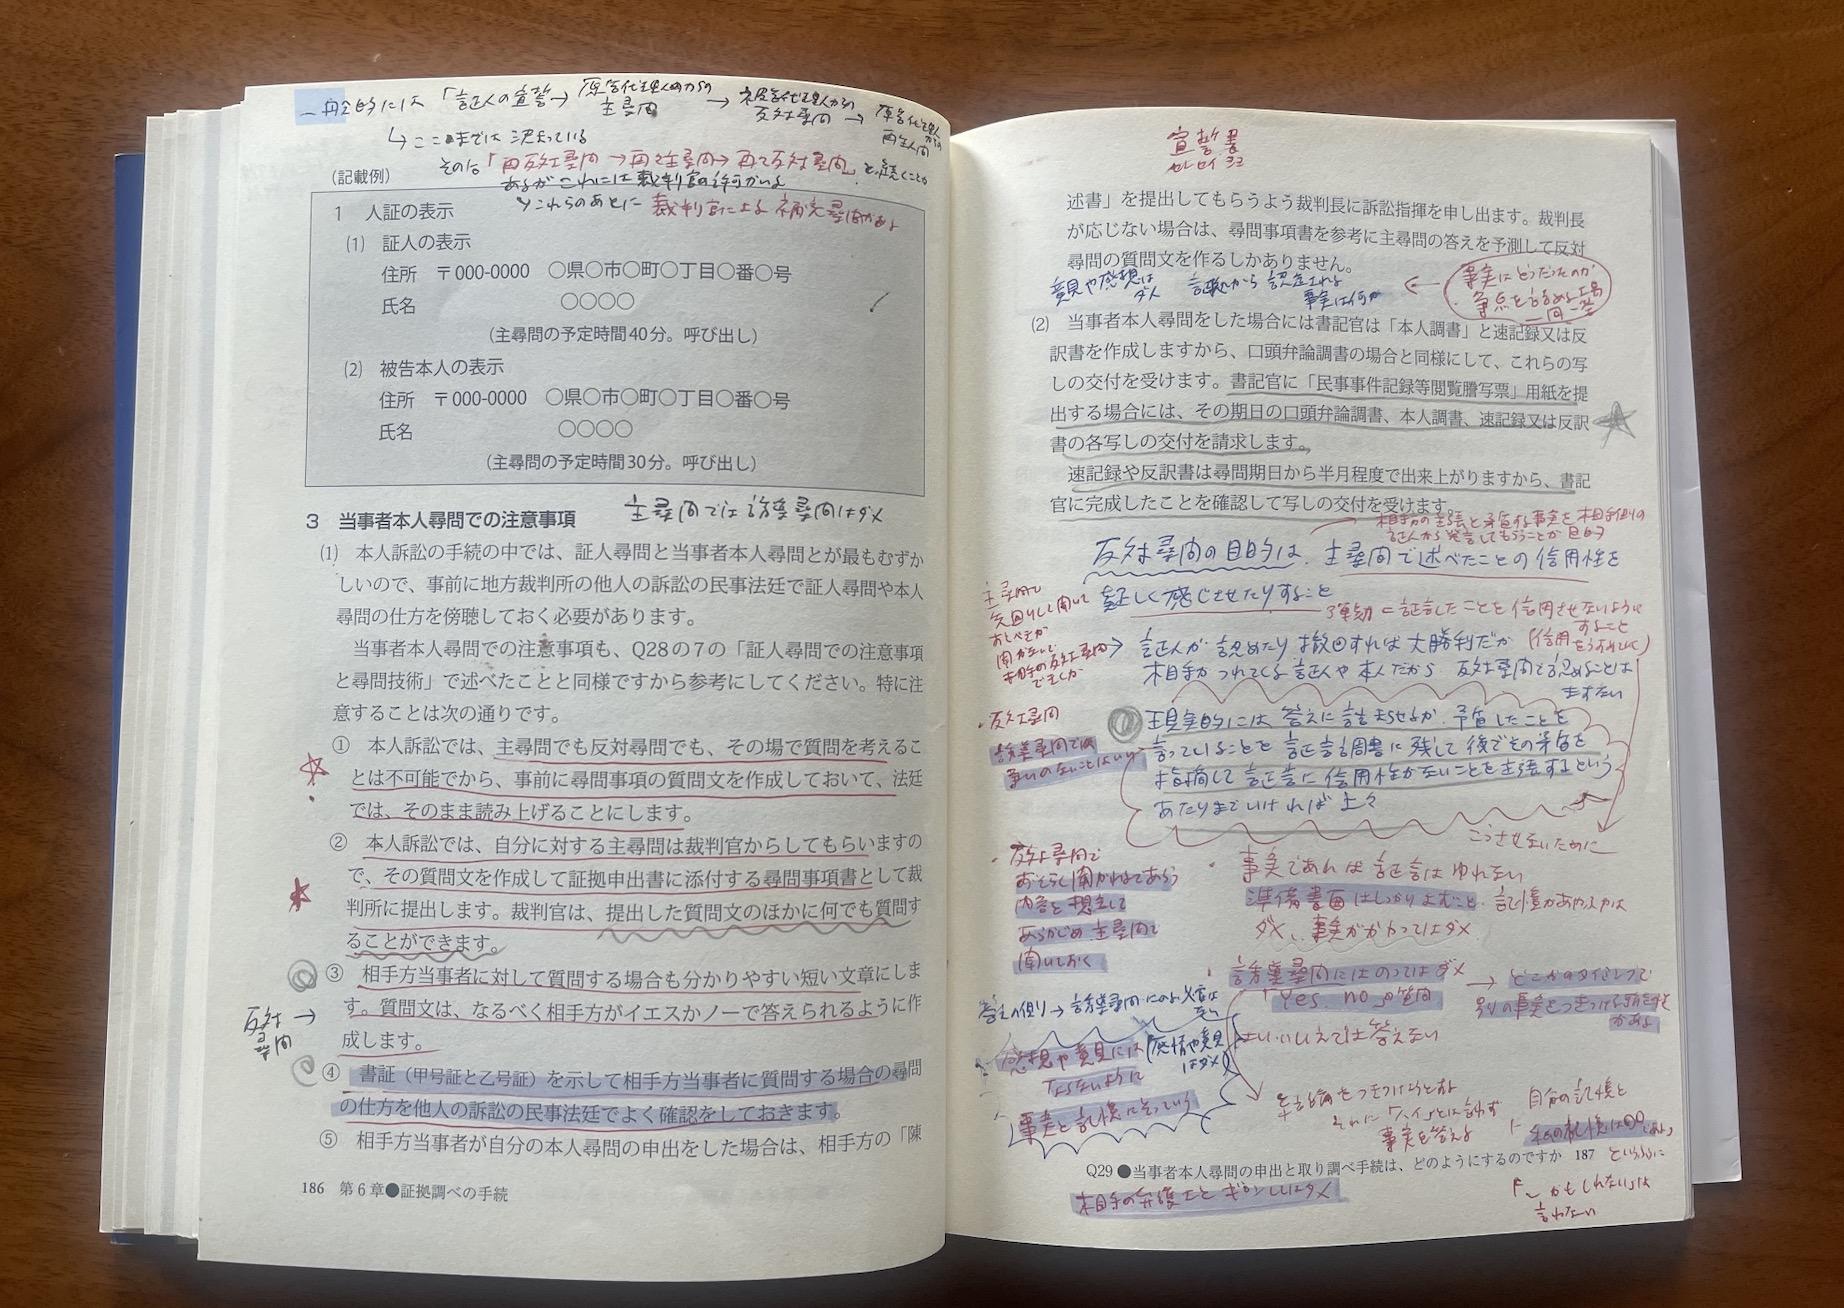 一般的には 「証人の宣誓→ 原告代理人からの
主尋問 → 被告代理人からの
反対尋問 → 原告代理人
からの
再主尋問
↳ ここまでは決まっている
その后「再反対尋問→再々主尋問→再々反対尋問」と続くことが
あるがこれには裁判官の許可がいる
↳これらのあとに 裁判官による補充尋問がある
(記載例)
1 人証の表示
(1) 証人の表示
住所 〒000-0000 ○県○市○町○丁目○番○号
氏名 ○○○○
(主尋問の予定時間40分。呼び出し)
(2) 被告本人の表示
住所 〒000-0000 ○県○市○町○丁目○番○号
氏名 ○○○○
(主尋問の予定時間30分。呼び出し)
主尋問では誘導尋問はダメ
3 当事者本人尋問での注意事項
(1) 本人訴訟の手続の中では、証人尋問と当事者本人尋問とが最もむずか
しいので、事前に地方裁判所の他人の訴訟の民事法廷で証人尋問や本人
尋問の仕方を傍聴しておく必要があります。
当事者本人尋問での注意事項も、Q28の7の「証人尋問での注意事項
と尋問技術」で述べたことと同様ですから参考にしてください。特に注
意することは次の通りです。
① 本人訴訟では、主尋問でも反対尋問でも、その場で質問を考えるこ
とは不可能でから、事前に尋問事項の質問文を作成しておいて、法廷
では、そのまま読み上げることにします。
② 本人訴訟では、自分に対する主尋問は裁判官からしてもらいますの
で、その質問文を作成して証拠申出書に添付する尋問事項書として裁
判所に提出します。裁判官は、提出した質問文のほかに何でも質問す
ることができます。
③ 相手方当事者に対して質問する場合も分かりやすい短い文章にしま
す。質問文は、なるべく相手方がイエスかノーで答えられるように作
成します。
反対
尋問 →
④ 書証（甲号証と乙号証）を示して相手方当事者に質問する場合の尋問
の仕方を他人の訴訟の民事法廷でよく確認をしておきます。
⑤ 相手方当事者が自分の本人尋問の申出をした場合は、相手方の「陳
186 第6章●証拠調べの手続
宣誓書
述書」を提出してもらうよう裁判長に訴訟指揮を申し出ます。裁判長
が応じない場合は、尋問事項書を参考に主尋問の答えを予測して反対
尋問の質問文を作るしかありません。
意見や感想は
ダメ
証拠から認定される
事実は何か
← 事実にどうだったのか
争点を
(2) 当事者本人尋問をした場合には書記官は「本人調書」と速記録又は反
訳書を作成しますから、口頭弁論調書の場合と同様にして、これらの写
しの交付を受けます。書記官に「民事事件記録等閲覧謄写票」用紙を提
出する場合には、その期日の口頭弁論調書、本人調書、速記録又は反訳
書の各写しの交付を請求します。
速記録や反訳書は尋問期日から半月程度で出来上がりますから、書記
官に完成したことを確認して写しの交付を受けます。
相手方の主張と矛盾する事実を相手側の
証人から発言してもらうことが目的
反対尋問の目的は、主尋問で述べたことの信用性を
疑しく感じさせたりすること
弾劾＝証言したことを信用させないように
すること
主尋問で
先回りして聞いて
おくべきか
聞かないで
相手の反対尋問
でまくか
→ 証人が認めたり撤回すれば大勝利だが
相手がつれてくる証人や本人だから 反対尋問で認めることは
まずない
現実的には答えに詰まらせるか、矛盾したことを
言っていることを証言調書に残して後でその矛盾を
指摘して証言に信用性がないことを主張するという
あたりまでいければ上々
・反対尋問
誘導尋問では
争いのないことはいい
こうさせないために
・反対尋問で
おそらく聞かれるであろう
内容を想定して
あらかじめ主尋問で
聞いておく
・事実であれば証言はゆれない
準備書面はしっかりよむこと、記憶があやふやは
ダメ、事実がかわってはダメ
・誘導尋問にはのってはダメ
「Yes, no」の質問
→ どこかのタイミングで
別の事実をつきつける
がある
はいいいえでは答えない
答える側→誘導尋問にのる必要は
ない
感想や意見には
ならないように
(感情や意見
はダメ)
事実と記憶にそっていう
それに「ハイ」とは言わず
事実を答える
自分の記憶と
「私の記憶は○○である」
というように
「〜かもしれない」は
言わない
Q29●当事者本人尋問の申出と取り調べ手続は、どのようにするのですか 187
相手の弁護士とギロンしてはダメ